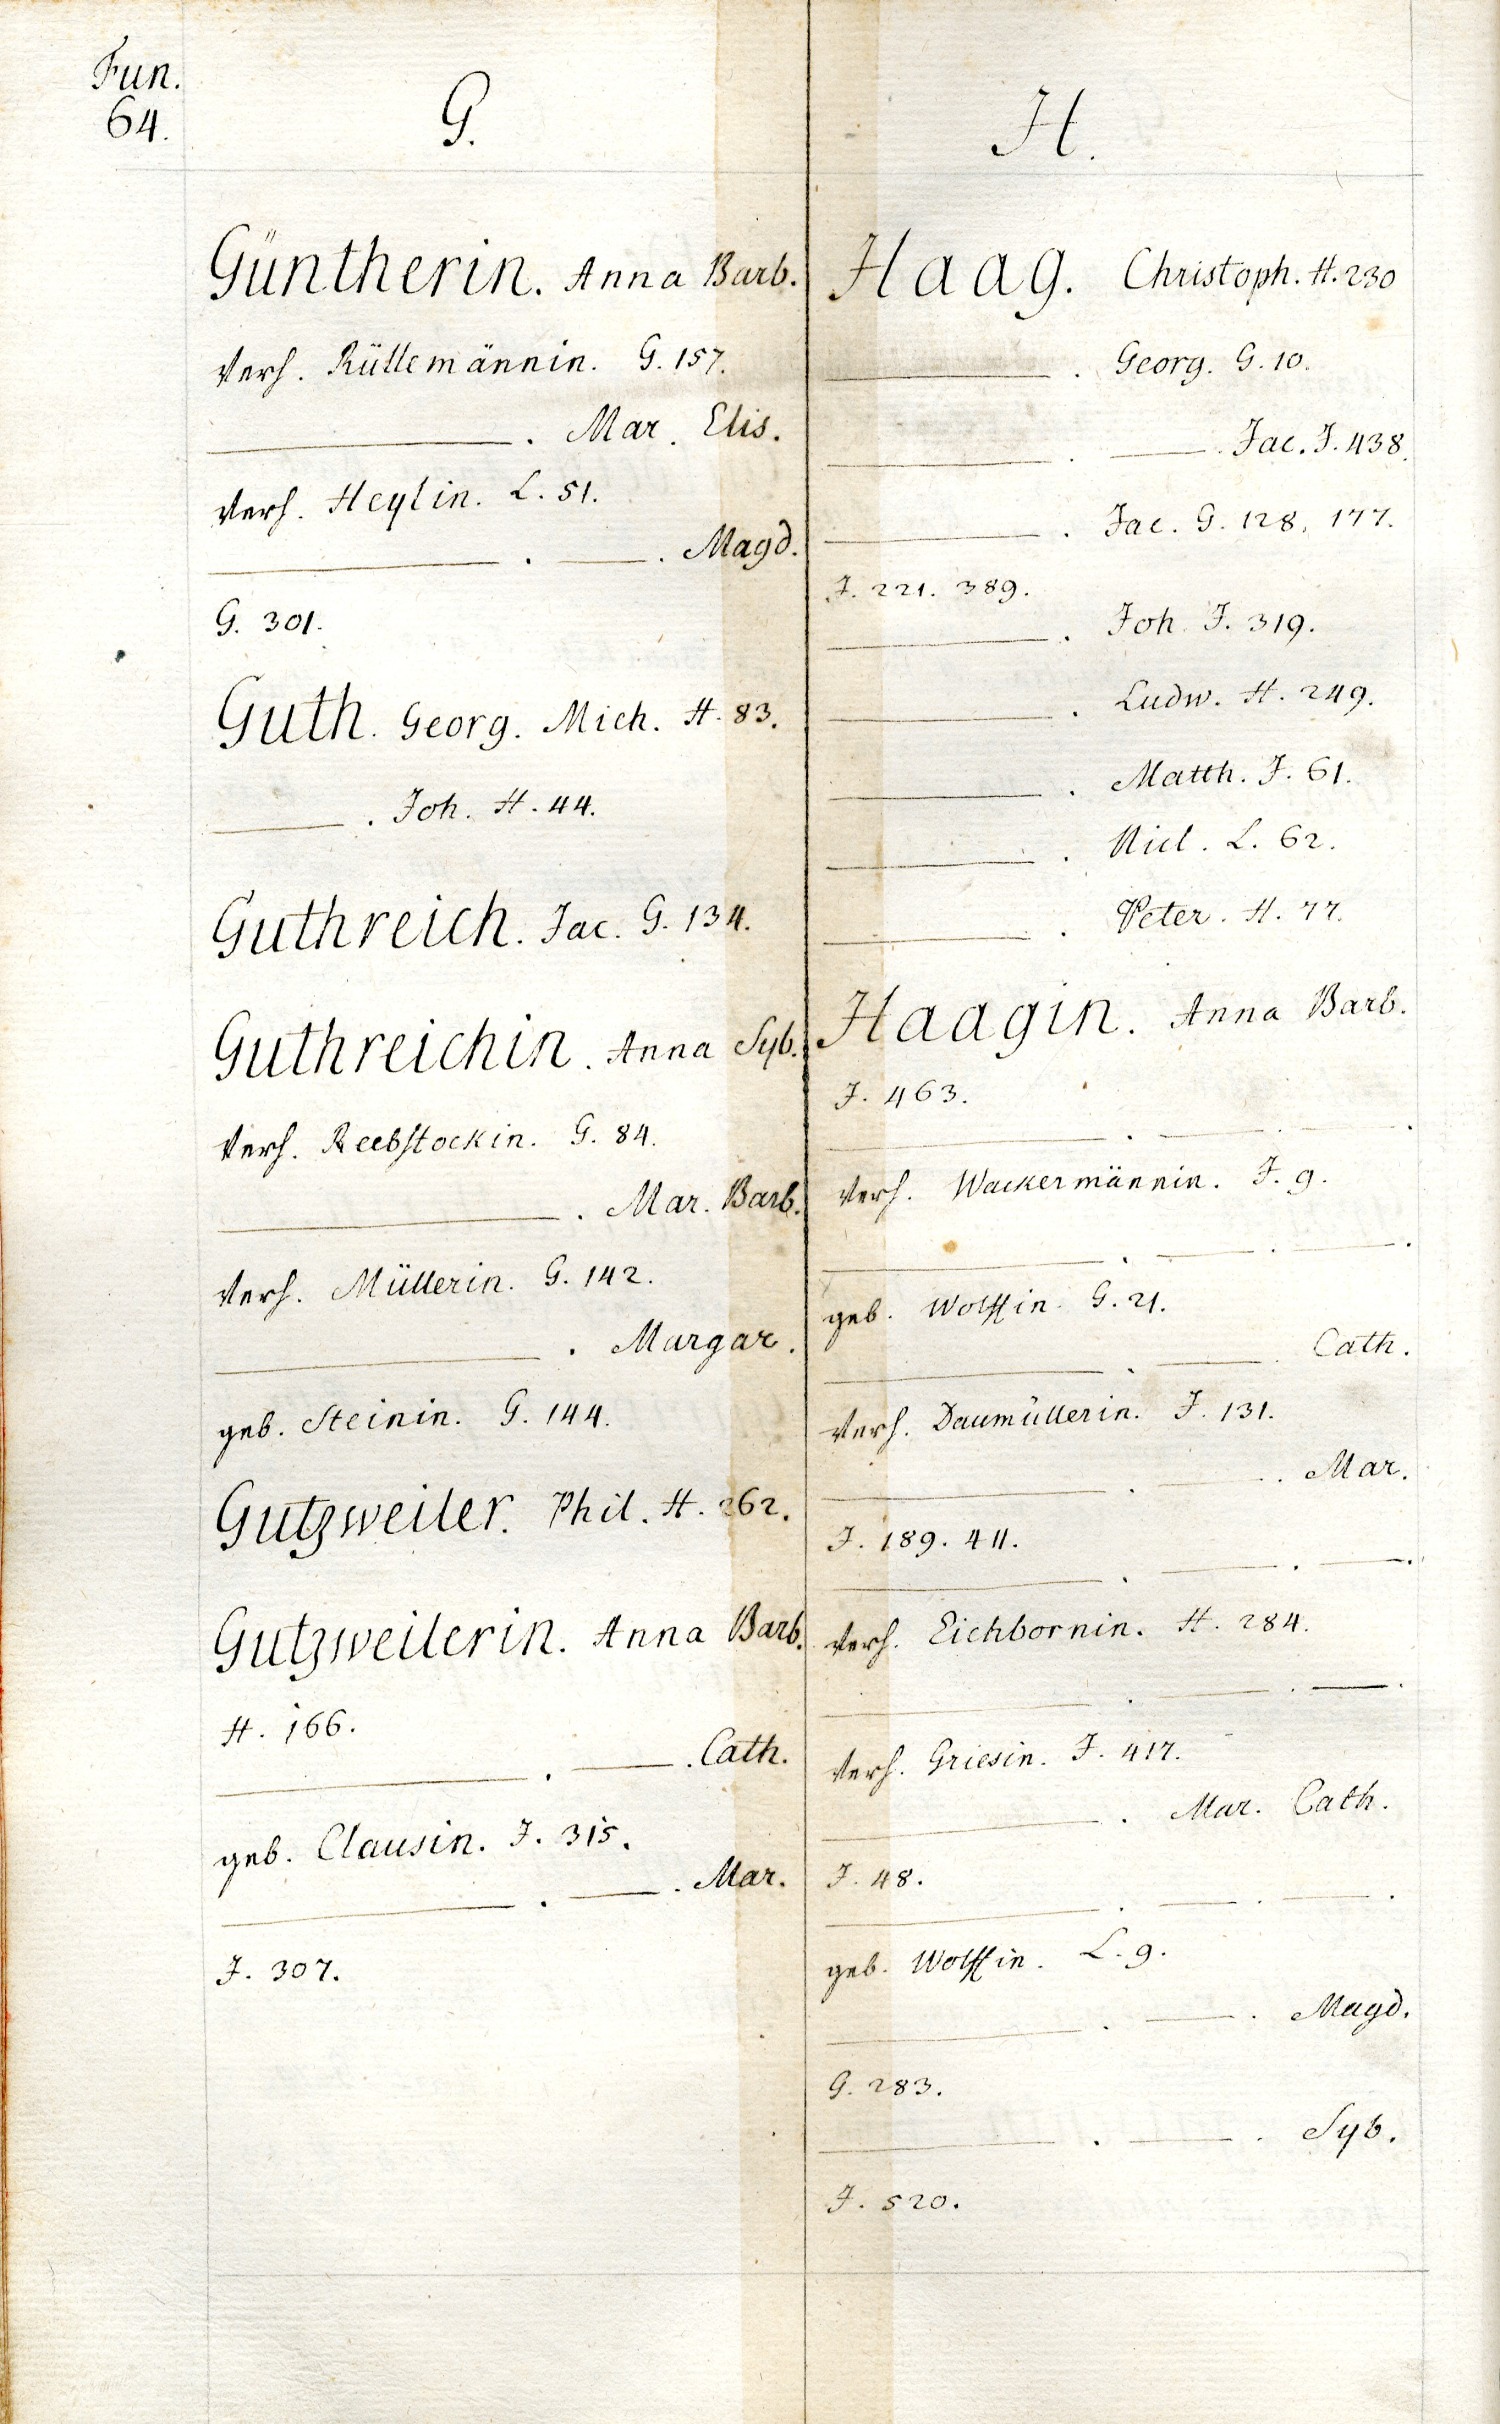 Fun.
64.
G.
Güntherin. Anna Barb.
verh. Rüllemännin. G. 157.
———. Mar. Elis.
verh. Heylin. L. 51.
———. ———. Magd.
G. 301.
Guth. Georg. Mich. H. 83.
———. Joh. H. 44.
Guthreich. Jac. G. 134.
Guthreichin. Anna Syb.
verh. Reebstockin. G. 84.
———. Mar. Barb.
verh. Müllerin. G. 142.
———. Margar.
geb. Steinin. G. 144.
Gutzweiler. Phil. H. 262.
Gutzweilerin. Anna Barb.
H. 166.
———. ———. Cath.
geb. Clausin. J. 315.
———. ———. Mar.
J. 307.
H.
Haag. Christoph. H. 230
———. Georg. G. 10.
———. ———. Jac. J. 438.
———. Jac. G. 128. 177.
J. 221. 389.
———. Joh. J. 319.
———. Ludw. H. 249.
———. Matth. J. 61.
———. Nicl. L. 62.
———. Peter. H. 77.
Haagin. Anna Barb.
J. 463.
———. ———. ———.
verh. Wackermännin. J. 9.
———. ———. ———.
geb. Wolffin. G. 21.
———. ———. Cath.
verh. Daumüllerin. J. 131.
———. ———. Mar.
J. 189. 411.
———. ———. ———.
verh. Eichbornin. H. 284.
———. ———. ———.
verh. Griesin. J. 417.
———. Mar. Cath.
J. 48.
———. ———. ———.
geb. Wolffin. L. 9.
———. ———. Magd.
G. 283.
———. ———. Syb.
J. 520.